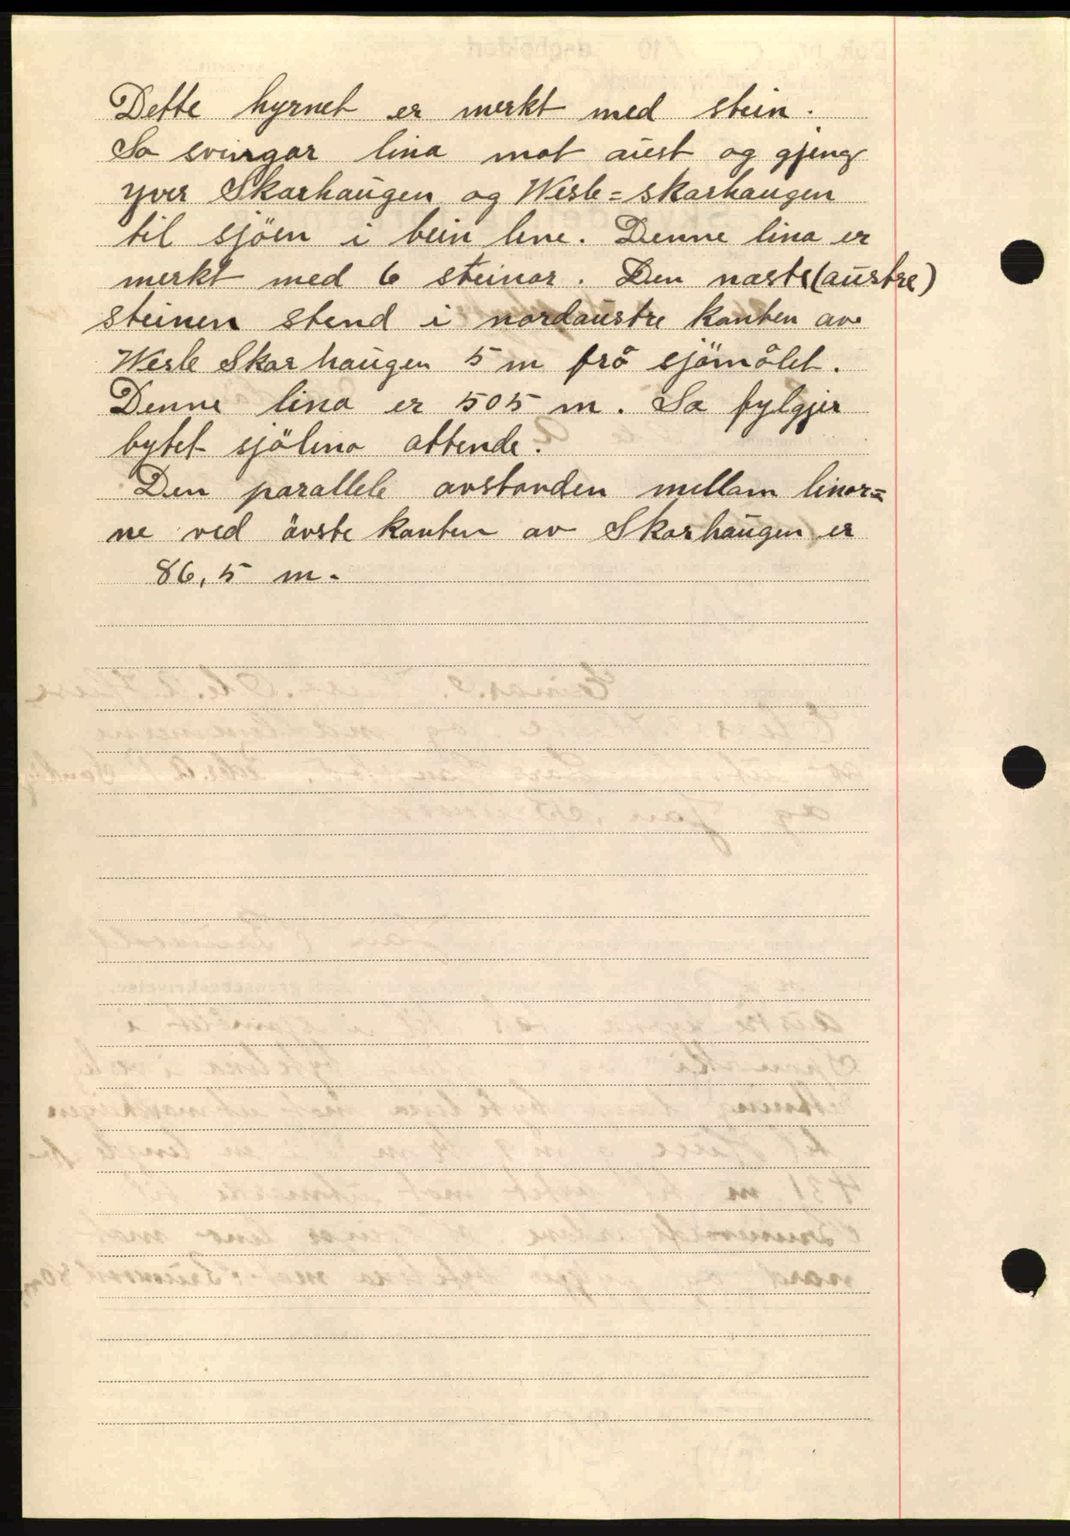 Dette hyrnet er merkt med stein.
So svingar lina mot aust og gjeng
yver Skarhaugen og Wesle=skarhaugen
til sjöen i bein line. Denne lina er
merkt med 6 steinar. Den naste (austre)
steinen stend i nordaustre kanten av
Wesle Skarhaugen 5 m frå sjömålet.
Denne lina er 505 m. So fylgjer
bytet sjölina attende.
Den parallele avstanden mellam linor=
ne ved övste kanten av Skarhaugen er
86,5 m.